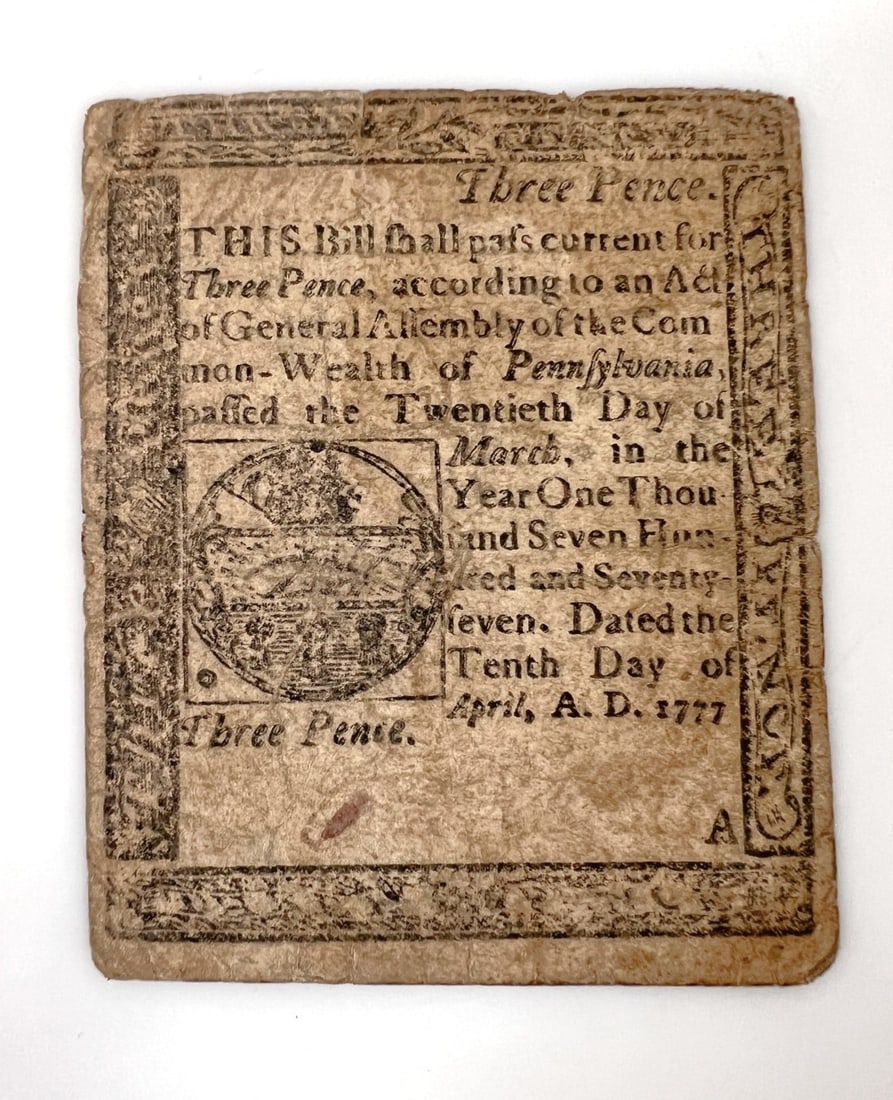 Three Pence.
THIS Bill ſhall paſs current for
Three Pence, according to an Act
of General Aſſembly of the Com
mon-Wealth of Pennſylvania,
paſſed the Twentieth Day of
March, in the
Year One Thou-
ſand Seven Hun-
dred and Seventy-
ſeven. Dated the
Tenth Day of
April, A. D. 1777
Three Pence.
A